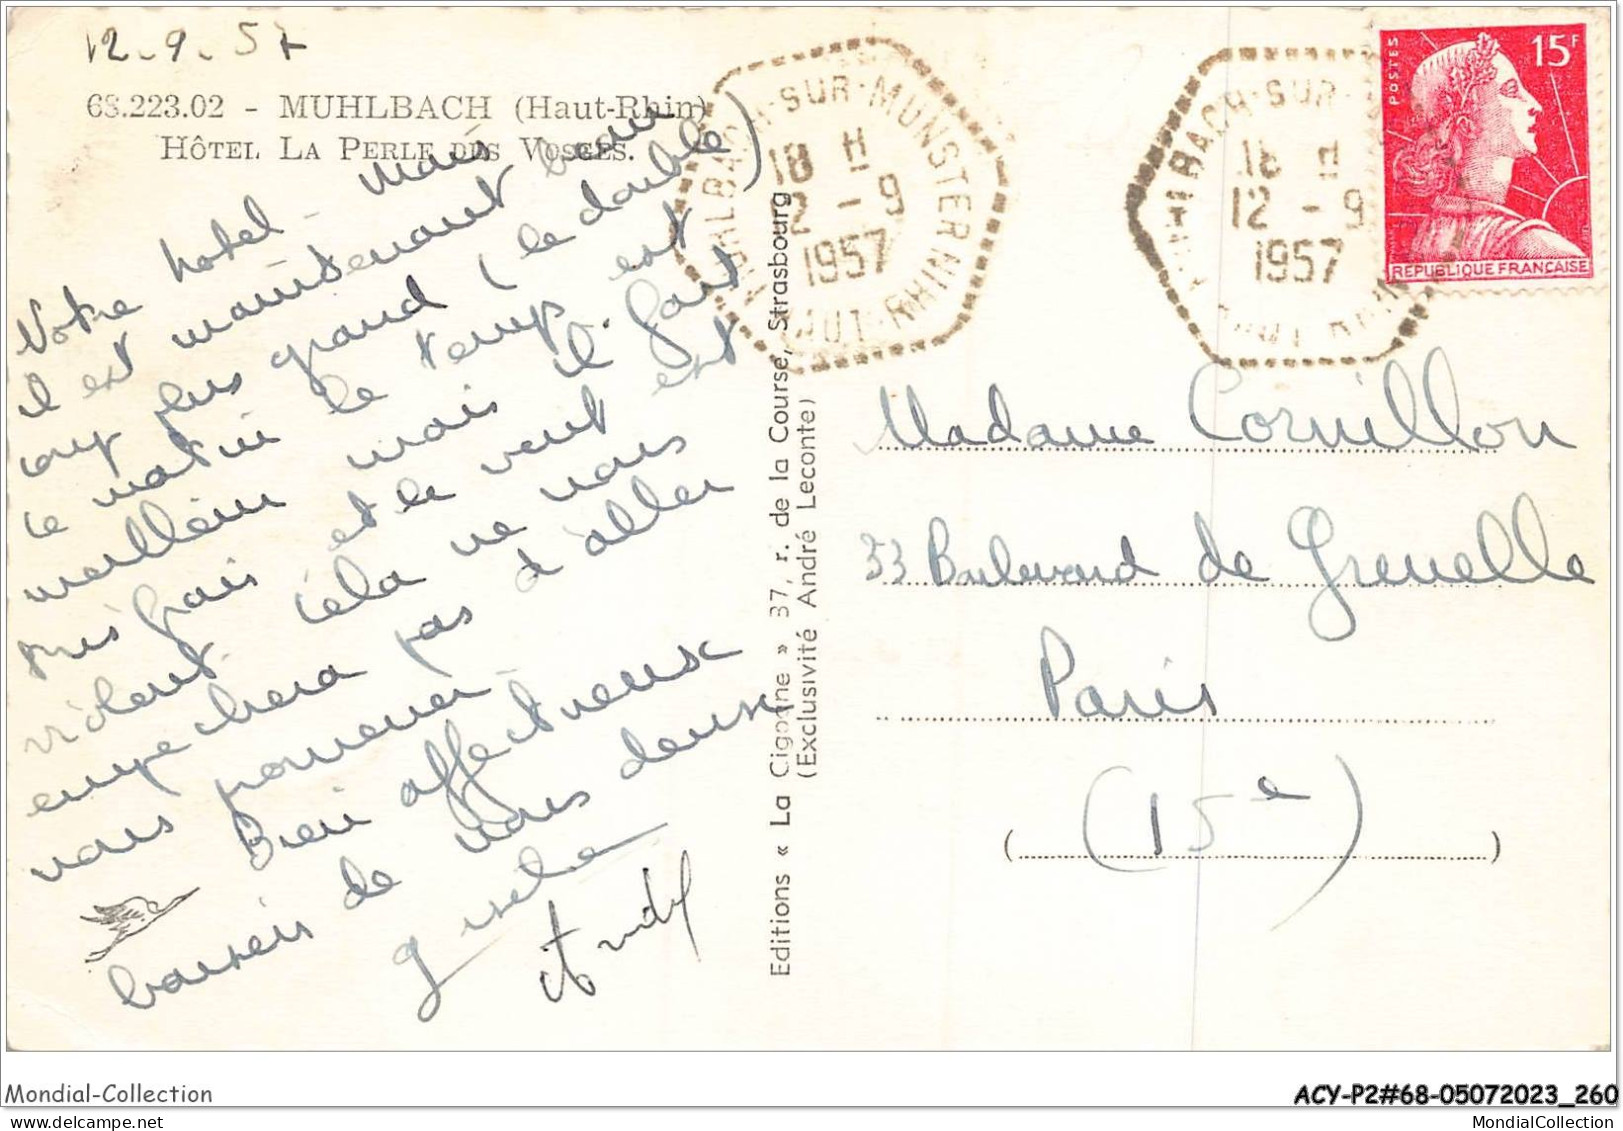 12.9.57
68.223.02 - MUHLBACH (Haut-Rhin)
HÔTEL LA PERLE DES VOSGES.
Notre hotel - mais
il est maintenant beau
coup plus grand (le double)
ce matin le temps est
meilleur mais il fait
très frais et le vent est
violent. Cela ne nous
empechera pas d'aller
nous promener.
Bien affectueux
baisers de nous deux
Gisele
André
Editions « La Cigogne » 37, r. de la Course, Strasbourg
(Exclusivité André Leconte)
MUHLBACH-SUR-MUNSTER
HAUT-RHIN
18 H
12 - 9
1957
MUHLBACH-SUR-
18 H
12 - 9
1957
HAUT-RHIN
POSTES
15F
REPUBLIQUE FRANÇAISE
Madame Cornillon
33 Boulevard de Grenelle
Paris
(15e)
Mondial-Collection
ACY-P2#68-05072023_260
MondialCollection